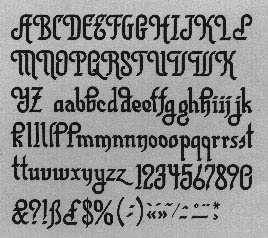 ABCDEFGGHIJKLP
MNOPQRSTUVWX
YZ aabbccddeeffggghhiijjk
kllllffmmnnnooopqqrrsst
ttuvwxyyzz 1234567890
&?!ß£$%(-)«»/